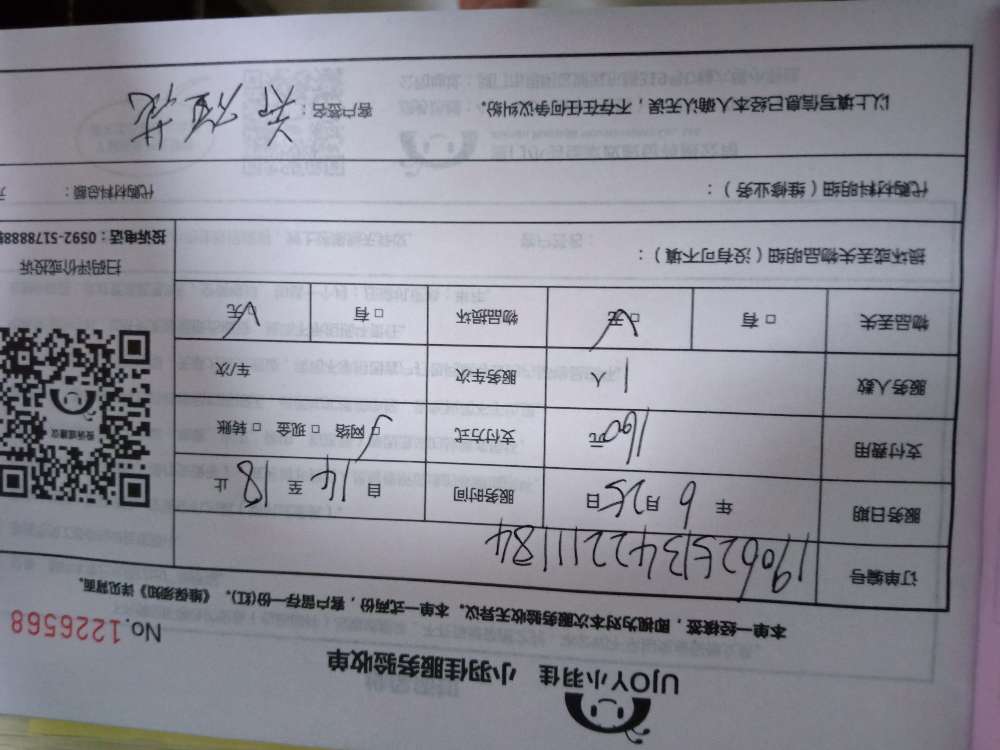 UJOY小羽佳 小羽佳服务验收单
No.1226568
本单一经核签，即视为对本次服务验收无异议。本单一式两份，客户留存一份(红)。《维保须知》详见背面。
订单编号 190625134221184
服务日期 年 6 月 25 日 服务时间 自 14 至 18 止
支付费用 160 元 支付方式 □ 网络 □ 现金 □ 转账
服务人数 1 人 服务车次 车/次
物品丢失 □ 有 □ 无 物品损坏 □ 有 □ 无
扫码评价或投诉
投诉电话：0592-5178888
损坏或丢失物品明细（没有可不填）：
代购材料明细（维修业务）： 代购材料总额： 元
以上填写信息已经本人确认无误，不存在任何争议纠纷。 客户签名：